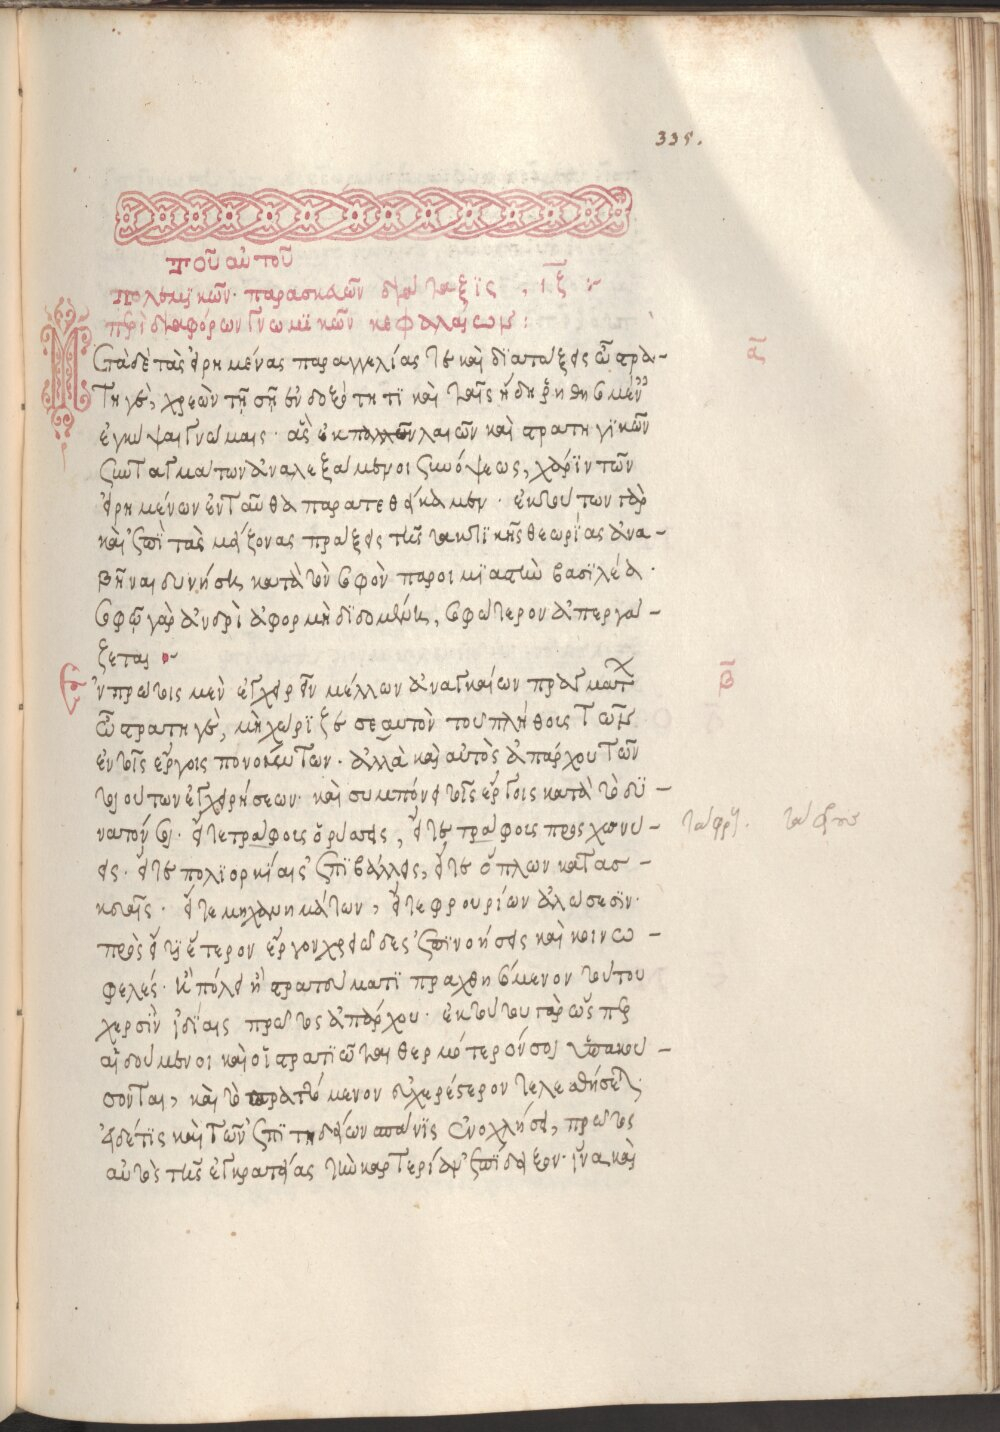 335.
Τοῦ αὐτοῦ
Πολεμικῶν παρασκευῶν διάταξις ιξ
περὶ διαφόρων γνωμικῶν κεφαλαίων:
Μετὰ δὲ τὰς εἰρημένας παραγγελίας τε καὶ διατάξεις ὦ στρα-
α
τηγὲ, χρεὼν τῇ σῇ ἐνδοξότητι καὶ ταῖς ἤδη ῥηθησομέν
ἐγκύψαι γνώμαις. ἃς ἐκ παλαιῶν καὶ στρατηγικῶν
συνταγμάτων ἀναλεξάμενοι συνόψεως, χάριν τῶν
εἰρημένων ἐνταῦθα παρατεθείκαμεν. ἐκ τούτων γὰρ
καὶ ἐπὶ τὰς μείζονας πράξεις τῆς τακτικῆς θεωρίας ἀνα-
βῆναι δυνήσει κατὰ τὸν σοφὸν παροιμιαστὴν βασιλέα.
σοφῷ γὰρ ἀνδρὶ ἀφορμὴ διδομένη, σοφώτερον ἀπεργά-
ζεται
Ἐν πρώτοις μὲν ἐγχειρεῖν μέλλων ἀναγκαίων πραγματ
β
ὦ στρατηγὲ, μὴ χωρίζε σεαυτὸν τοῦ πλήθους τῶν
ἐν τοῖς ἔργοις πονούντων. ἀλλὰ καὶ αὐτὸς ἀπάρχου τῶν
τοιούτων ἐγχειρήσεων. καὶ συμπόνει τοῖς ἔργοις κατὰ τὸ δυ-
νατόν σοι. εἴτε τραφους ὀρύσσεις, εἴτε τραφους προσχωνύ-
εις. εἴτε πολιορκίαις ἐπιβάλλεις, εἴτε ὅπλων κατασ-
κευαῖς. εἴτε μηχανημάτων, εἴτε φρουρίων ἁλώσεσιν.
πρὸς εἴ τι ἕτερον ἔργον χρειῶδες ἐπινοήσεις καὶ κοινω-
φελές. ἢ πόλει ἢ στρατεύματι πραχθησόμενον τούτου
χερσὶν ἰδίαις πρῶτος ἀπάρχου. ἐκ τούτου γὰρ ὥσπερ
αἰδούμενοι καὶ οἱ στρατιῶται θερμότερόν σοι ὑπακού-
σονται, καὶ τὸ πραττόμενον εὐχερέστερον τελεσθήσεται
εἰ δέ τις καὶ τῶν ἐπιτηδείων σπάνις ἐνοχλήσει, πρῶτος
αὐτὸς τῆς ἐγκρατείας τὴν καρτερίαν ἐπίδειξον. ἵνα καὶ